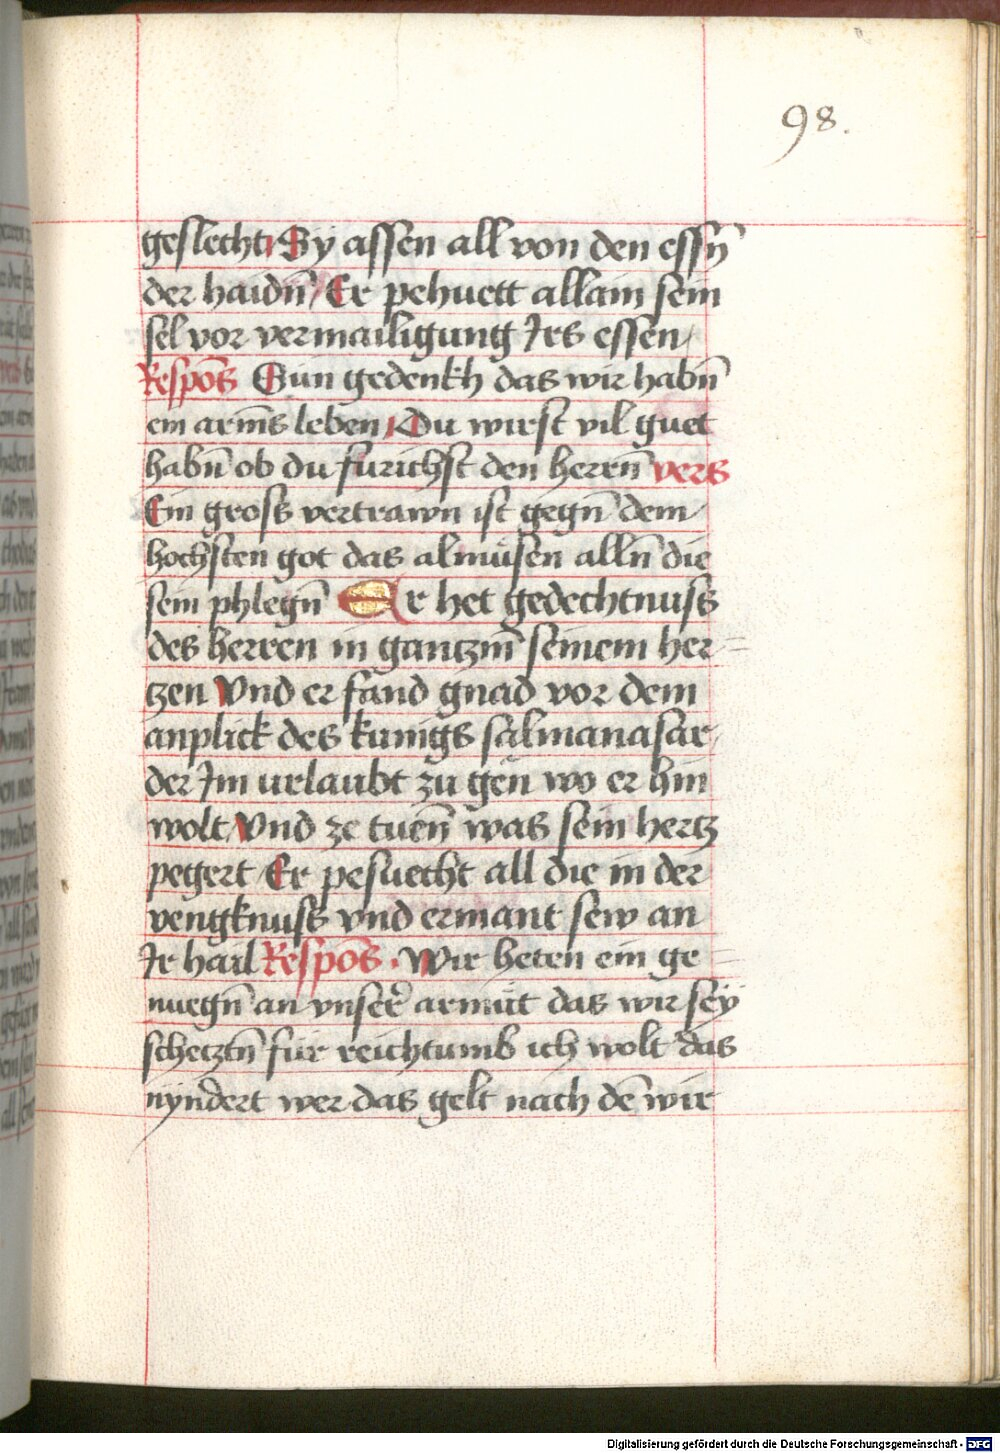 98.
geslecht Sy assen all von den essn̄
der haidn̄ Er pehuett allain sein
sel vor vermailigung Irs essen
Respōs Sun gedenkh das wir habn̄
ein arm̄s leben Du wirst vil guet
habn̄ ob du furichst den herrn̄ vers
Ein gross vertrawn ist gegn̄ dem
hochsten got das almüsen alln̄ die
sein phlegn̄ Er het gedechtnuss
des herren in gantzm̄ seinem her=
tzen Vnd er fand gnad vor dem
anplick des kunigs salmanasar
der Im urlaubt zu gen wo er hin
wolt Vnd ze tuen̄ was sein hertz
pegert Er pesuecht all die in der
vengknuss vnd ermant sew an
Ir hail Respōs. Wir heten ein ge=
nuegn̄ an vnser̄ armüt das wir sey
schetztn̄ für reichtumb ich wolt das
nyndert wer das gelt nach dē wir
Digitalisierung gefördert durch die Deutsche Forschungsgemeinschaft - DFG